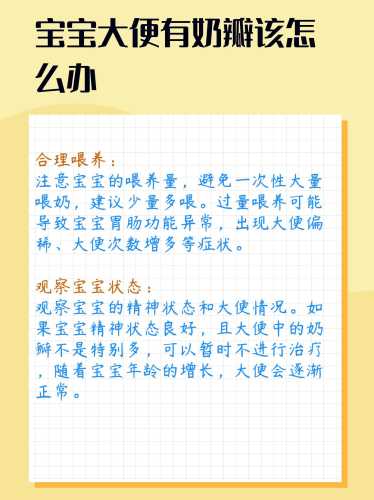 宝宝大便有奶瓣该怎
么办
合理喂养：
注意宝宝的喂养量，避免一次性大量
喂奶，建议少量多喂。过量喂养可能
导致宝宝胃肠功能异常，出现大便偏
稀、大便次数增多等症状。
观察宝宝状态：
观察宝宝的精神状态和大便情况。如
果宝宝精神状态良好，且大便中的奶
瓣不是特别多，可以暂时不进行治疗
，随着宝宝年龄的增长，大便会逐渐
正常。